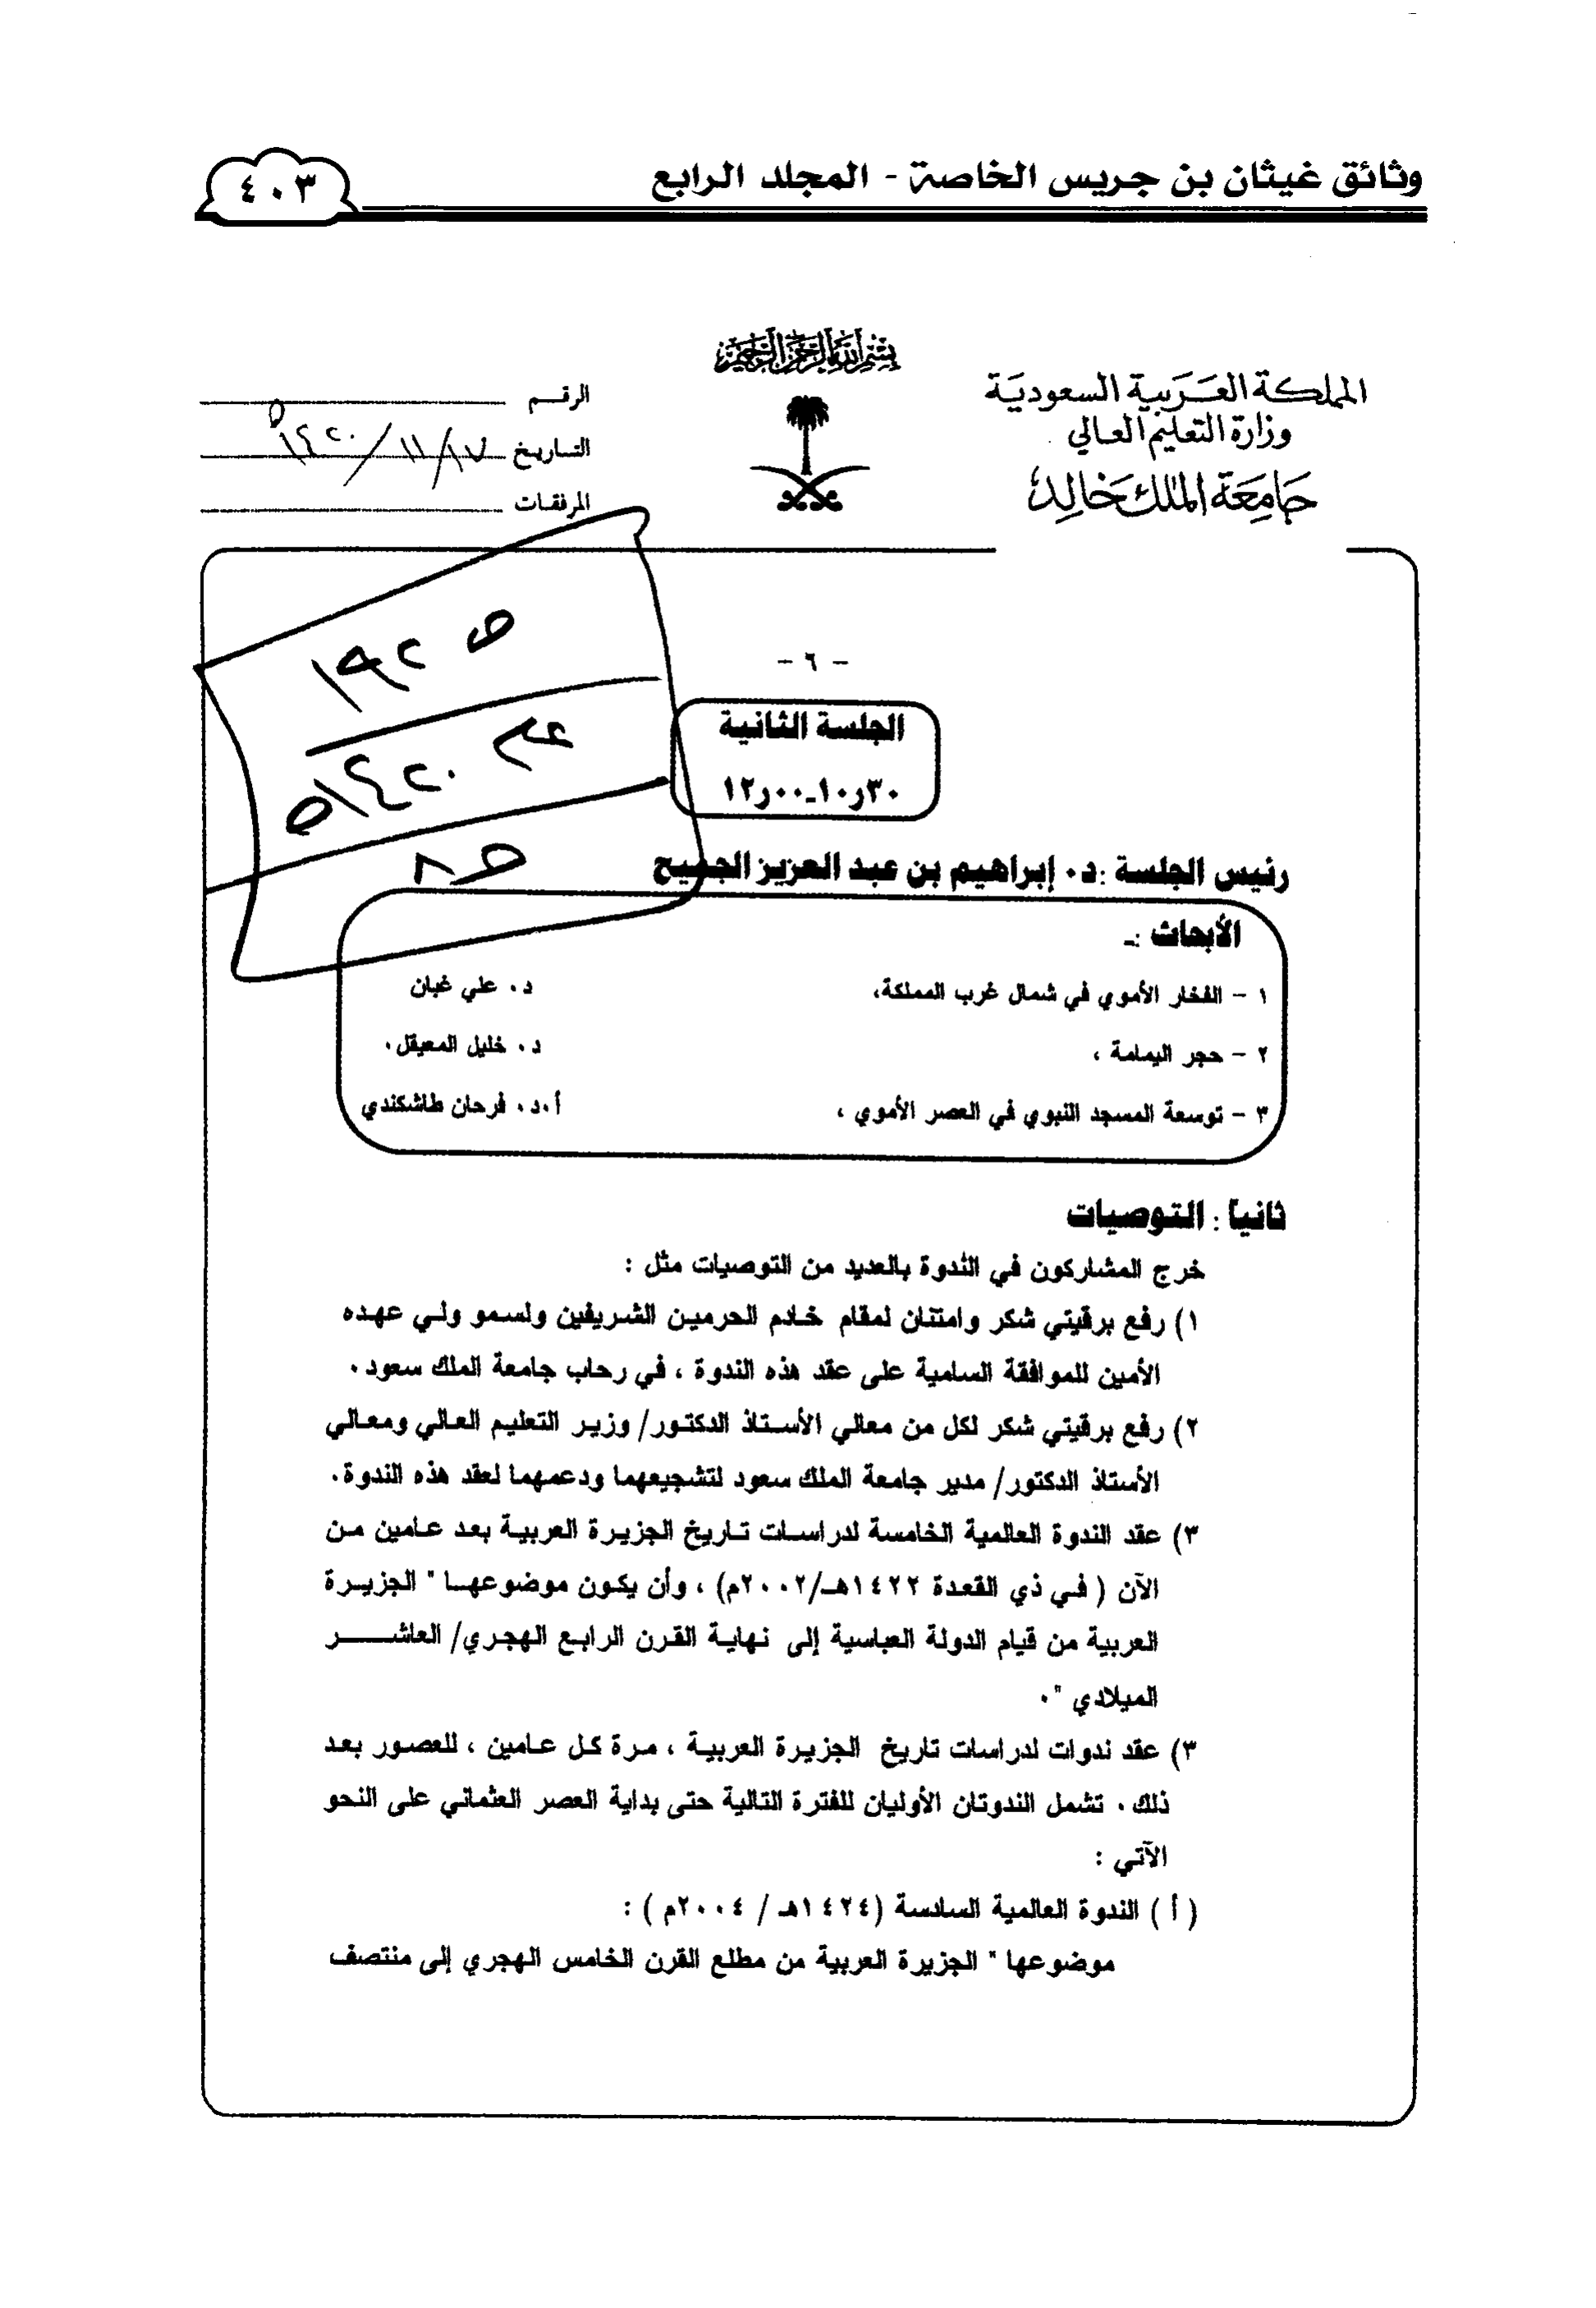 وثائق غيثان بن جريس الخاصة - المجلد الرابع
٤٠٣
بسم الله الرحمن الرحيم
المملكة العربية السعودية
وزارة التعليم العالي
جامعة الملك خالد
الرقم
التاريخ ١٧/١١/١٤٢٠هـ
المرفقات
- ٦ -
١٩٢
١٤٢٠هـ
الجلسة الثانية
٣٠ر١٠ـ٠٠ر١٢
رئيس الجلسة :د٠ إبراهيم بن عبد العزيز الجميح
الأبحاث :ـ
١ - الفخار الأموي في شمال غرب المملكة، د٠ علي غبان
٢ - حجر اليمامة ، د٠ خليل المعيقل٠
٣ - توسعة المسجد النبوي في العصر الأموي ، أ٠د٠ فرحان طاشكندي
ثانياً : التوصيات
خرج المشاركون في الندوة بالعديد من التوصيات مثل :
١) رفع برقيتي شكر وامتنان لمقام خادم الحرمين الشريفين ولسمو ولي عهده
الأمين للموافقة السامية على عقد هذه الندوة ، في رحاب جامعة الملك سعود٠
٢) رفع برقيتي شكر لكل من معالي الأستاذ الدكتور/ وزير التعليم العالي ومعالي
الأستاذ الدكتور/ مدير جامعة الملك سعود لتشجيعهما ودعمهما لعقد هذه الندوة.
٣) عقد الندوة العالمية الخامسة لدراسات تاريخ الجزيرة العربية بعد عامين من
الآن ( في ذي القعدة ١٤٢٢هـ/٢٠٠٢م) ، وأن يكون موضوعها " الجزيرة
العربية من قيام الدولة العباسية إلى نهاية القرن الرابع الهجري/ العاشر
الميلادي "٠
٣) عقد ندوات لدراسات تاريخ الجزيرة العربية ، مرة كل عامين ، للعصور بعد
ذلك٠ تشمل الندوتان الأوليان للفترة التالية حتى بداية العصر العثماني على النحو
الآتي :
( أ ) الندوة العالمية السادسة (١٤٢٤هـ / ٢٠٠٤م ) :
موضوعها " الجزيرة العربية من مطلع القرن الخامس الهجري إلى منتصف